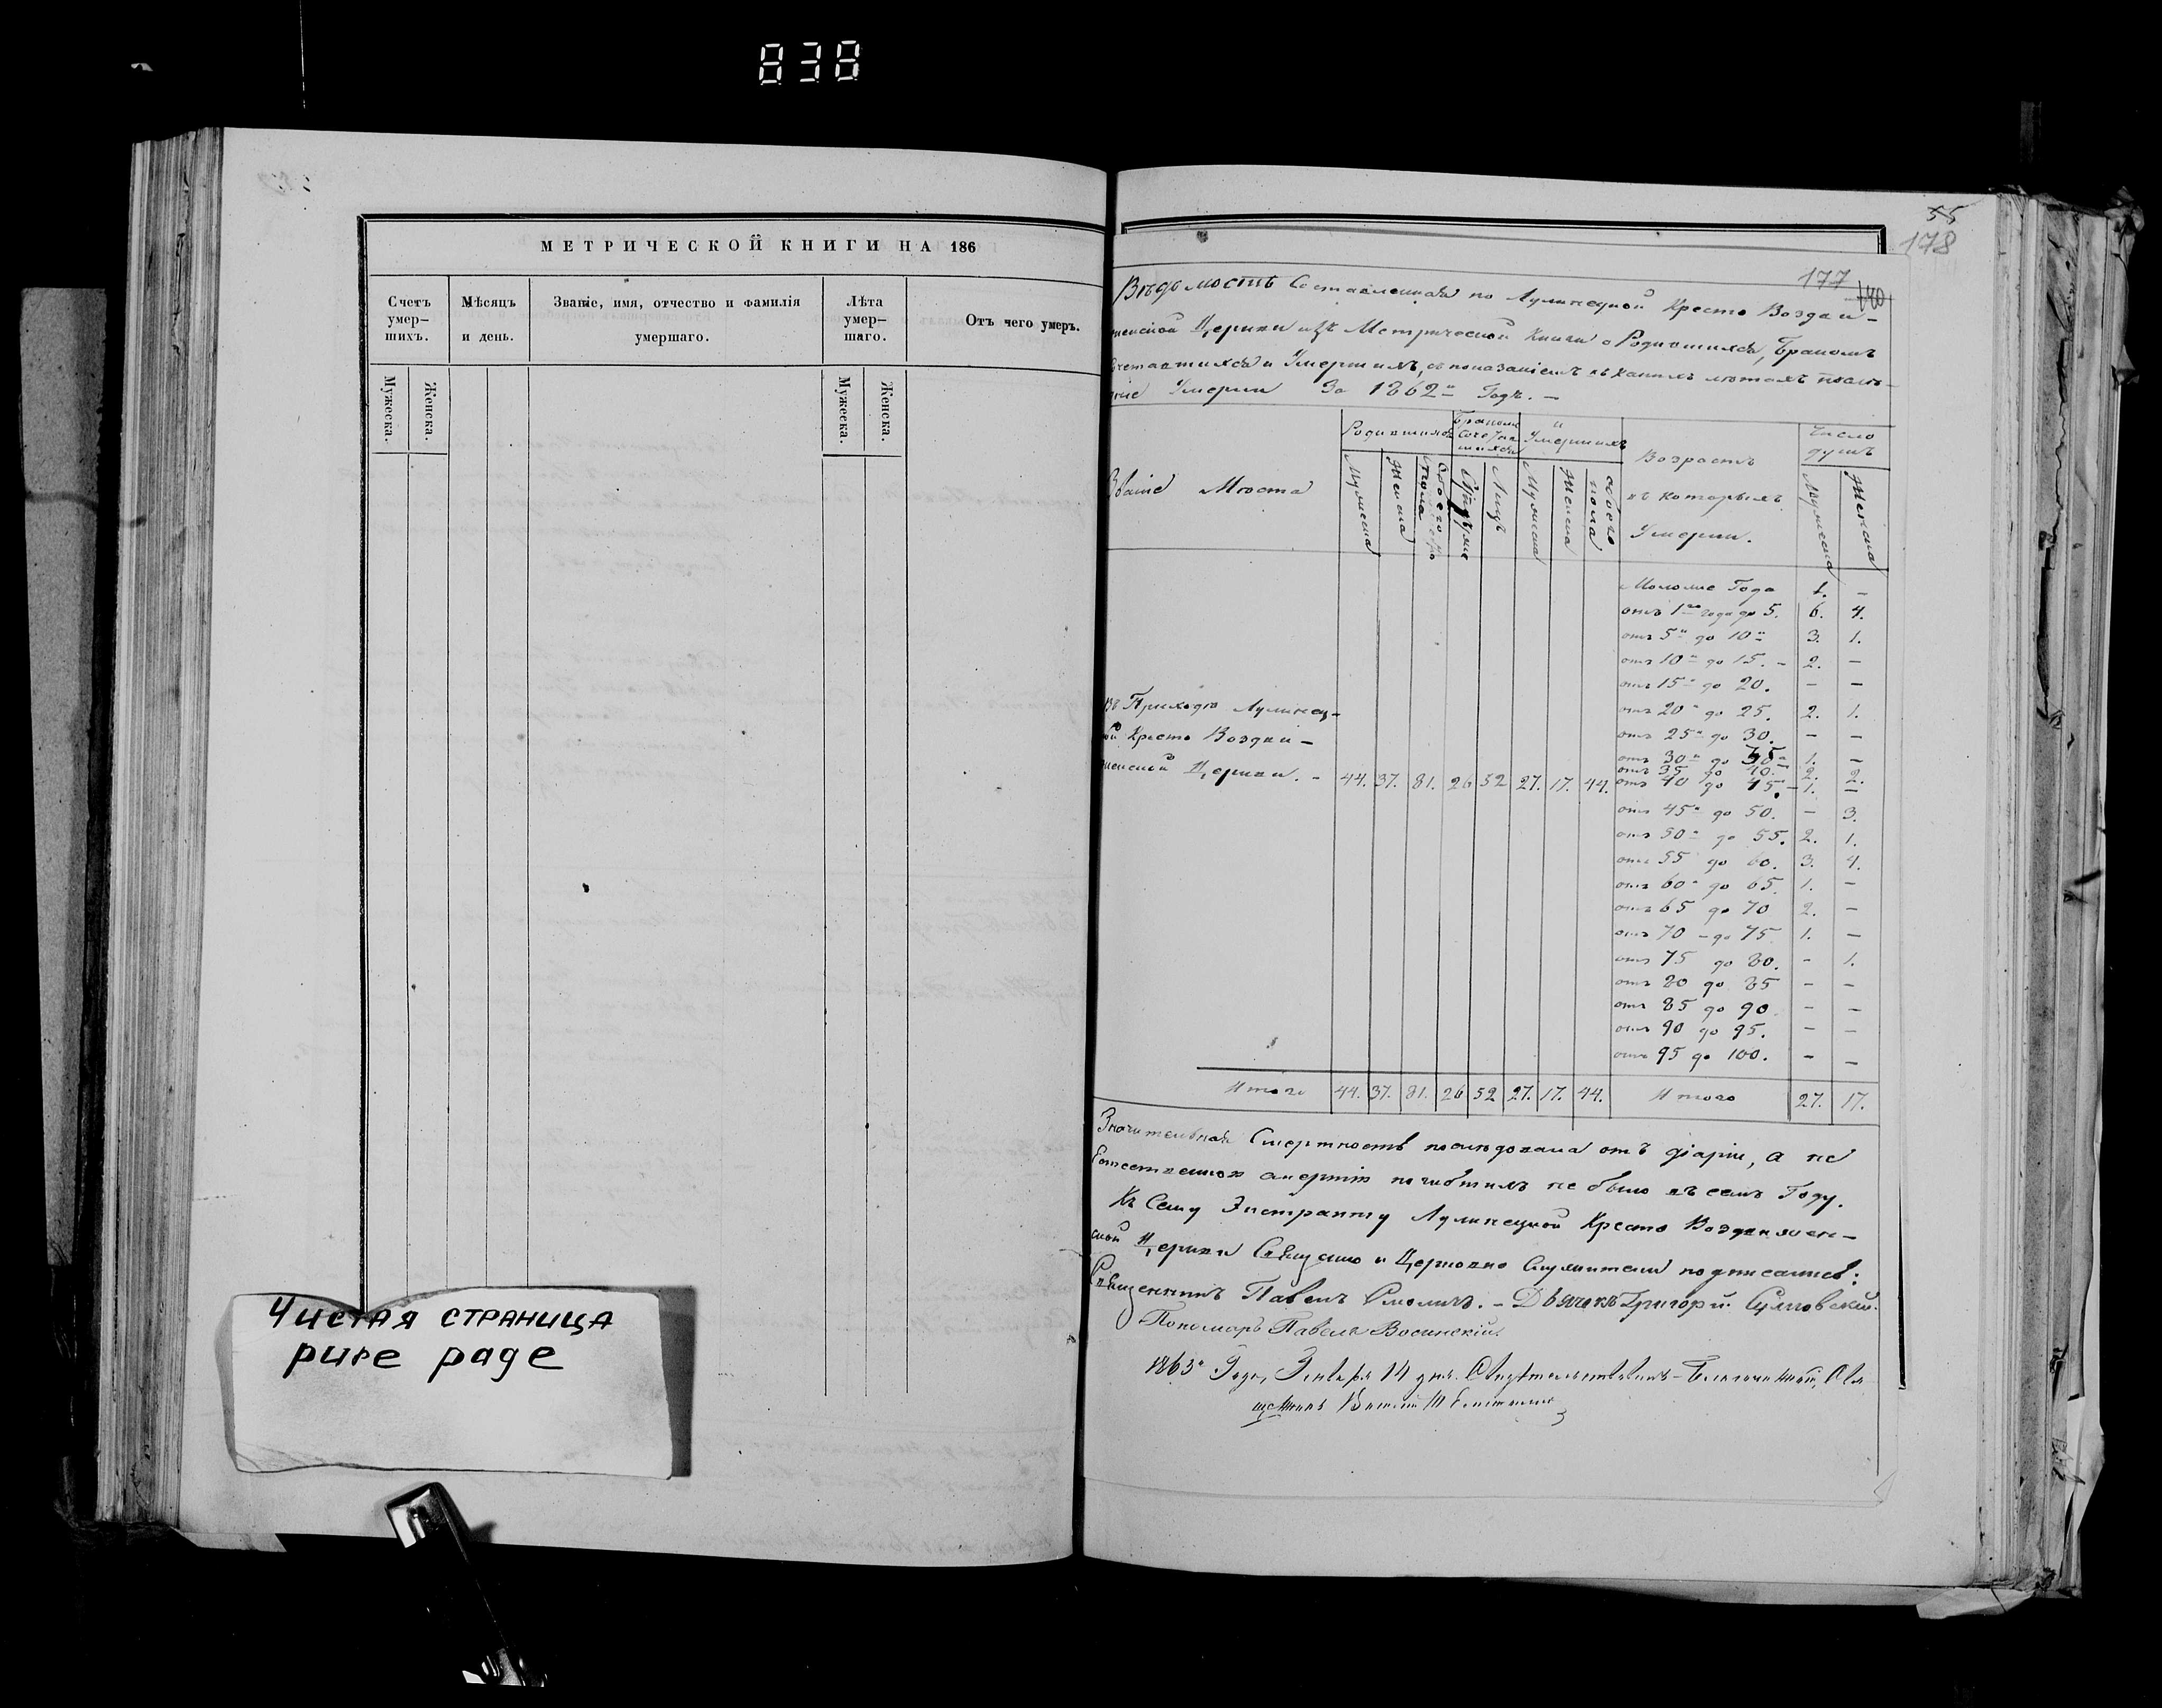 838
МЕТРИЧЕСКОЙ КНИГИ НА 186
Счетъ умер– шихъ.
Мѣсяцъ и день.
Званіе, имя, отчество и фамилія умершаго.
Лѣта умер– шаго.
Отъ чего умеръ.
Мужеска. Женска.
Мужеска. Женска.
Чистая страница
pure page
55
178
177
180
Вѣдомость Составленная по Лулинецкой Кресто Воздви–
женской Церкви изъ Метрической Книги о Родившихся, Бракомъ
сочетавшихся и Умершихъ, съ показаніемъ въ какихъ лѣтахъ
Умерли За 1862й Годъ. –
Званіе Мѣста
Родившихся
Бракомъ сочетавшихся
и Умершихъ
Возрастъ въ которыхъ Умерли.
Число душъ
Мужеска Женска Обоего пола
Лицъ
Мужеска Женска обоего пола
Мужеска Женска
Моложе Года 1. –
отъ 1го года до 5. 6. 4.
отъ 5и до 10и 3. 1.
отъ 10и до 15. – 2. –
отъ 15и до 20. – –
отъ 20и до 25. 2. 1.
отъ 25и до 30. – –
отъ 30и до 35 1. –
отъ 35 до 40. 2. 2.
отъ 40 до 45. – 1. –
отъ 45и до 50. – 3.
отъ 50и до 55. 2. 1.
отъ 55 до 60. 3. 4.
отъ 60и до 65. 1. –
отъ 65 до 70 2. –
отъ 70 – до 75. 1. –
отъ 75 до 80. – 1.
отъ 80 до 85 – –
отъ 85 до 90 – –
отъ 90 до 95. – –
отъ 95 до 100. – –
Въ Приходѣ Лулинец–
кой Кресто Воздви–
женской Церкви. – 44. 37. 81. 26 52 27. 17. 44.
Итого 44. 37. 81. 26 52 27. 17. 44. Итого 27. 17.
Значительная Смертность послѣдовала отъ діаріи, а не
Естественною смертію погибшихъ не было въ семъ Году.
Къ Сему Экстракту Лулинецкой Кресто Воздвижен–
ской Церкви Священно и Церковно Служители подписались:
Священникъ Павелъ Смоличъ. – Дьячекъ Григорій
Пономарь Павелъ
1863го Года, Января 14 дня. Свидѣтельствовалъ – Благочинный, Свя
щенникъ